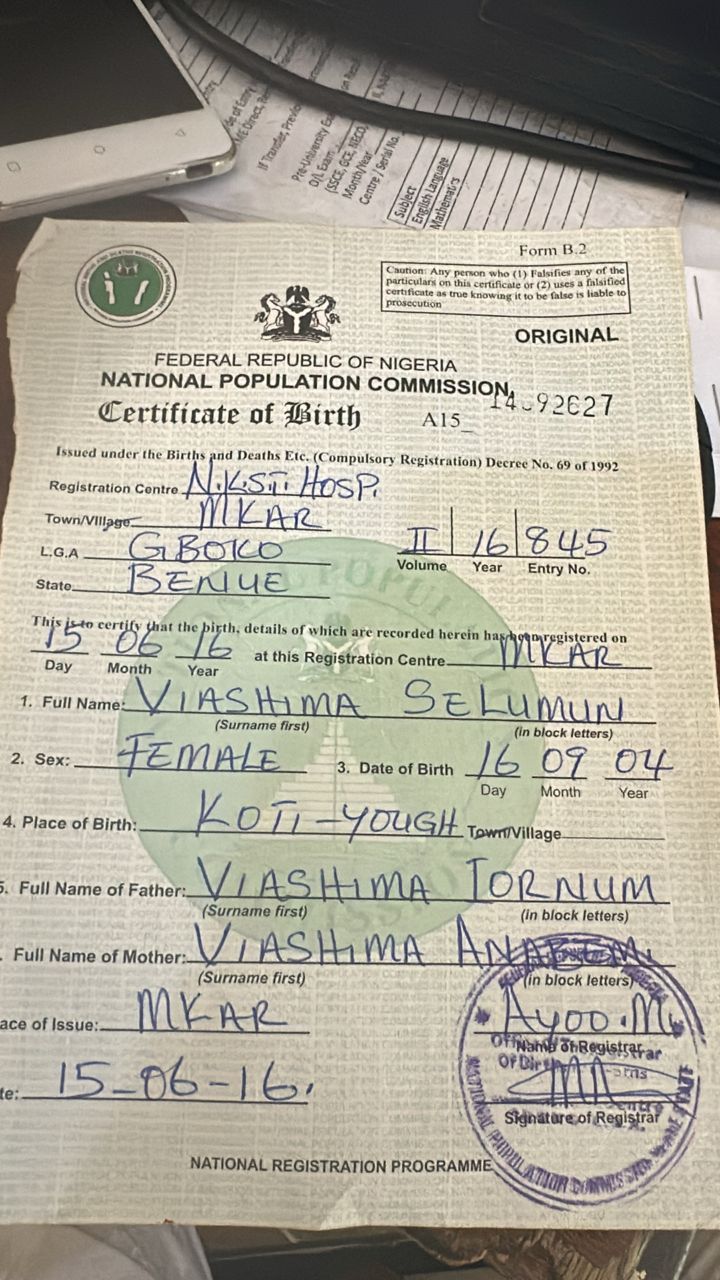 If Transfer, Previo
Pre-University Exa
O/L Exam
(SSCE, GCE, NECO,
Month/Year
Centre / Serial No.
Subject
English Language
Mathematics
Form B.2
Caution: Any person who (1) Falsifies any of the
particulars on this certificate or (2) uses a falsified
certificate as true knowing it to be false is liable to
prosecution
ORIGINAL
FEDERAL REPUBLIC OF NIGERIA
NATIONAL POPULATION COMMISSION
Certificate of Birth A15_ 92627
Issued under the Births and Deaths Etc. (Compulsory Registration) Decree No. 69 of 1992
Registration Centre N.K.S.T. HOSP.
Town/Village MKAR
L.G.A GBOKO II 16 845
Volume Year Entry No.
State BENUE
This is to certify that the birth, details of which are recorded herein has been registered on
15 06 16 at this Registration Centre MKAR
Day Month Year
1. Full Name: VIASHIMA SELUMUN
(Surname first) (in block letters)
2. Sex: FEMALE 3. Date of Birth 16 09 04
Day Month Year
4. Place of Birth: KOTI-YOUGH Town/Village
5. Full Name of Father: VIASHIMA IORNUM
(Surname first) (in block letters)
. Full Name of Mother: VIASHIMA
(Surname first) (in block letters)
ace of Issue: MKAR Ayoo.M
Name of Registrar
te: 15-06-16.
Signature of Registrar
NATIONAL REGISTRATION PROGRAMME